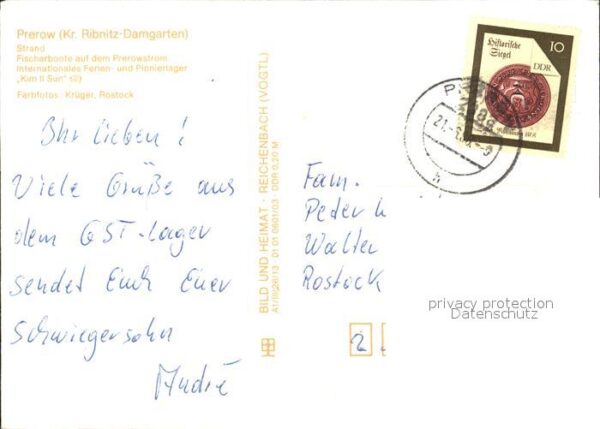 Prerow (Kr. Ribnitz-Damgarten)
Strand
Fischerboote auf dem Prerowstrom
Internationales Ferien- und Pionierlager
„Kim Il Sun" (2)
Farbfotos: Krüger, Rostock
Ihr Lieben!
Viele Grüße aus
dem GST-Lager
sendet Euch Euer
Schwiegersohn
André
BILD UND HEIMAT · REICHENBACH (VOGTL)
A1/III/26/13 01 01 0601/03 DDR 0,20 M
Historische
Siegel
10
DDR
Fam.
Peter u
Walter
Rostock
privacy protection
Datenschutz
2